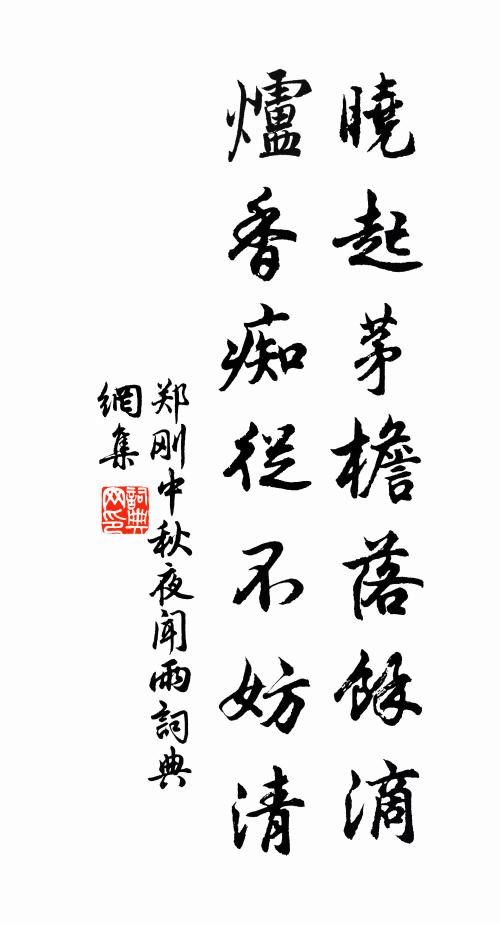 曉起茅檐落餘滴
爐香痴從不妨清
郑刚中秋夜闻雨詞典
網集
詞典
网印